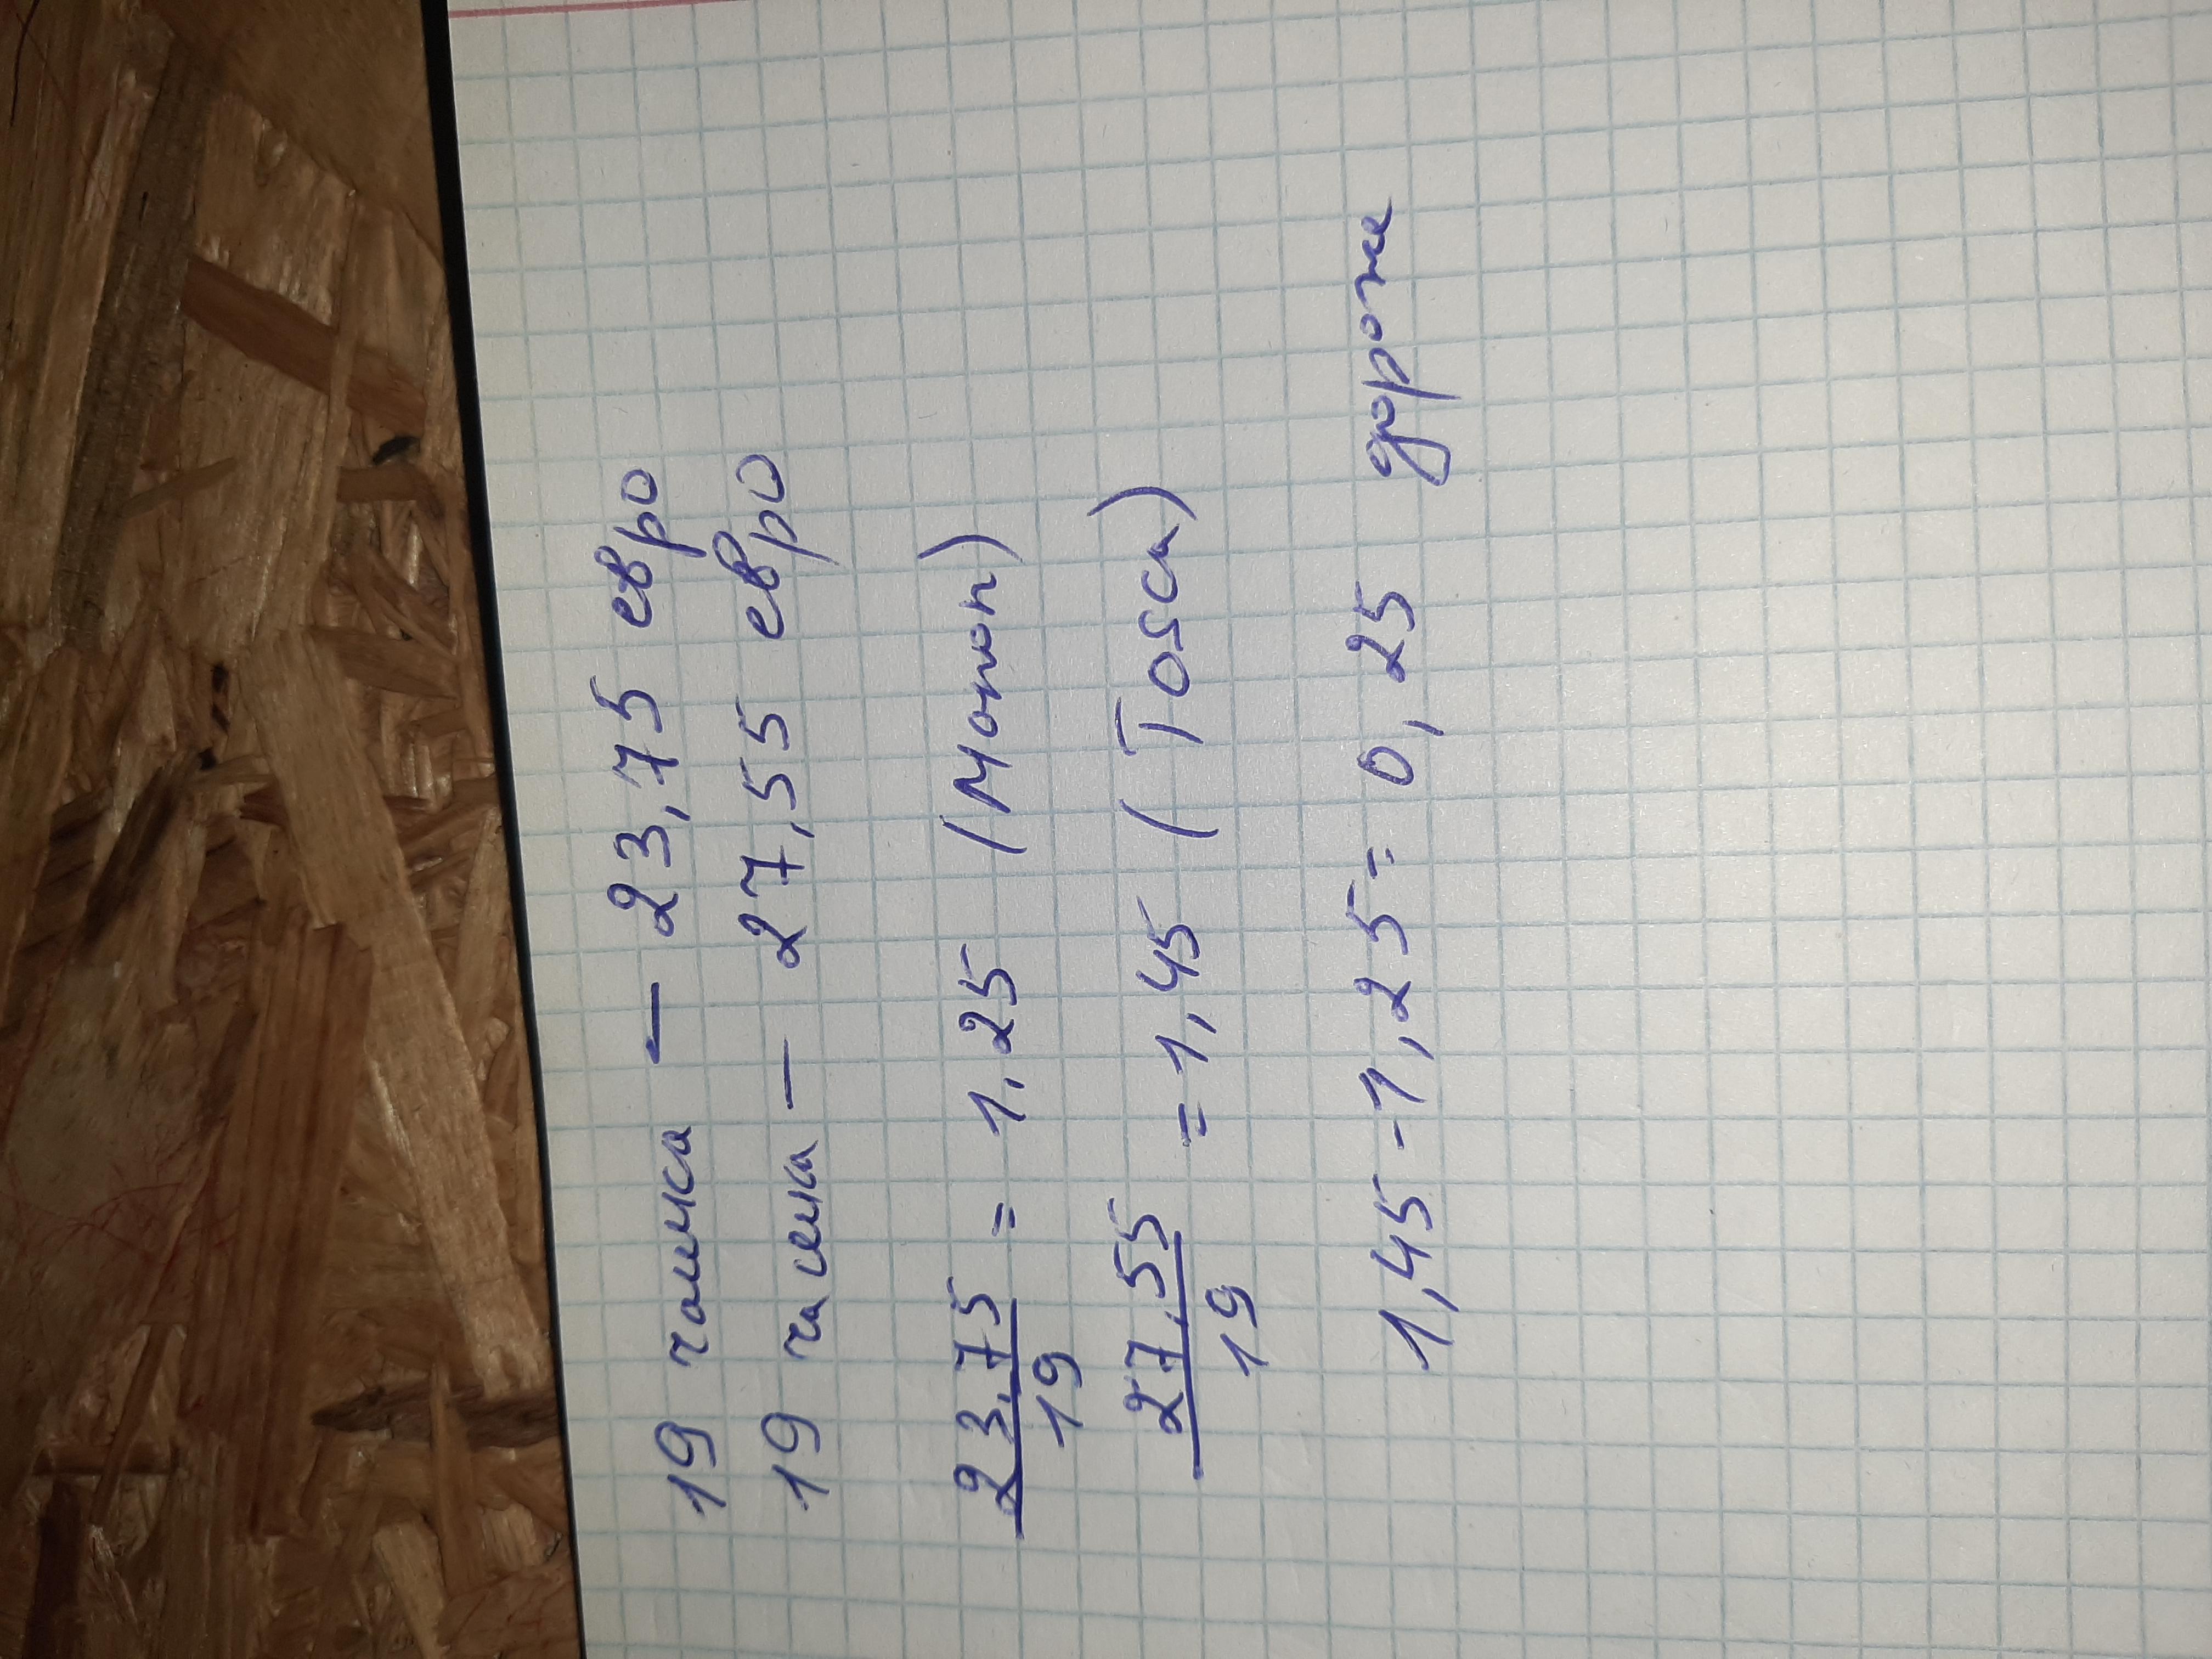 19 чашка - 23,75 евро
19 чашка - 27,55 евро
23,75 / 19 = 1,25 (Monon)
27,55 / 19 = 1,45 (Tosca)
1,45 - 1,25 = 0,25 дороже